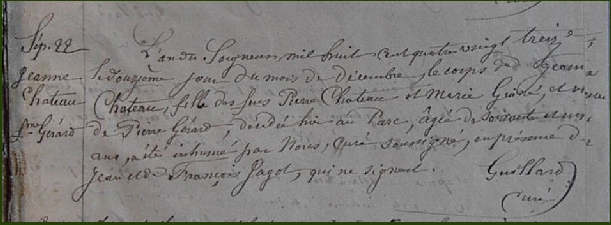 Sép. 22
Jeanne
Chateau
fme Gérard
L'an du Seigneur mil huit cent quatre vingt treize
le douzième jour du mois de décembre, le corps de Jeanne
Chateau, fille des feus Pierre Chateau et Marie et
de Pierre Gérard, décédée hier au Parc, âgée de soixante et
ans, a été inhumé par Nous, Curé soussigné, en présence de
Jean et de François Jagot, qui ne signent.
Guillard
curé